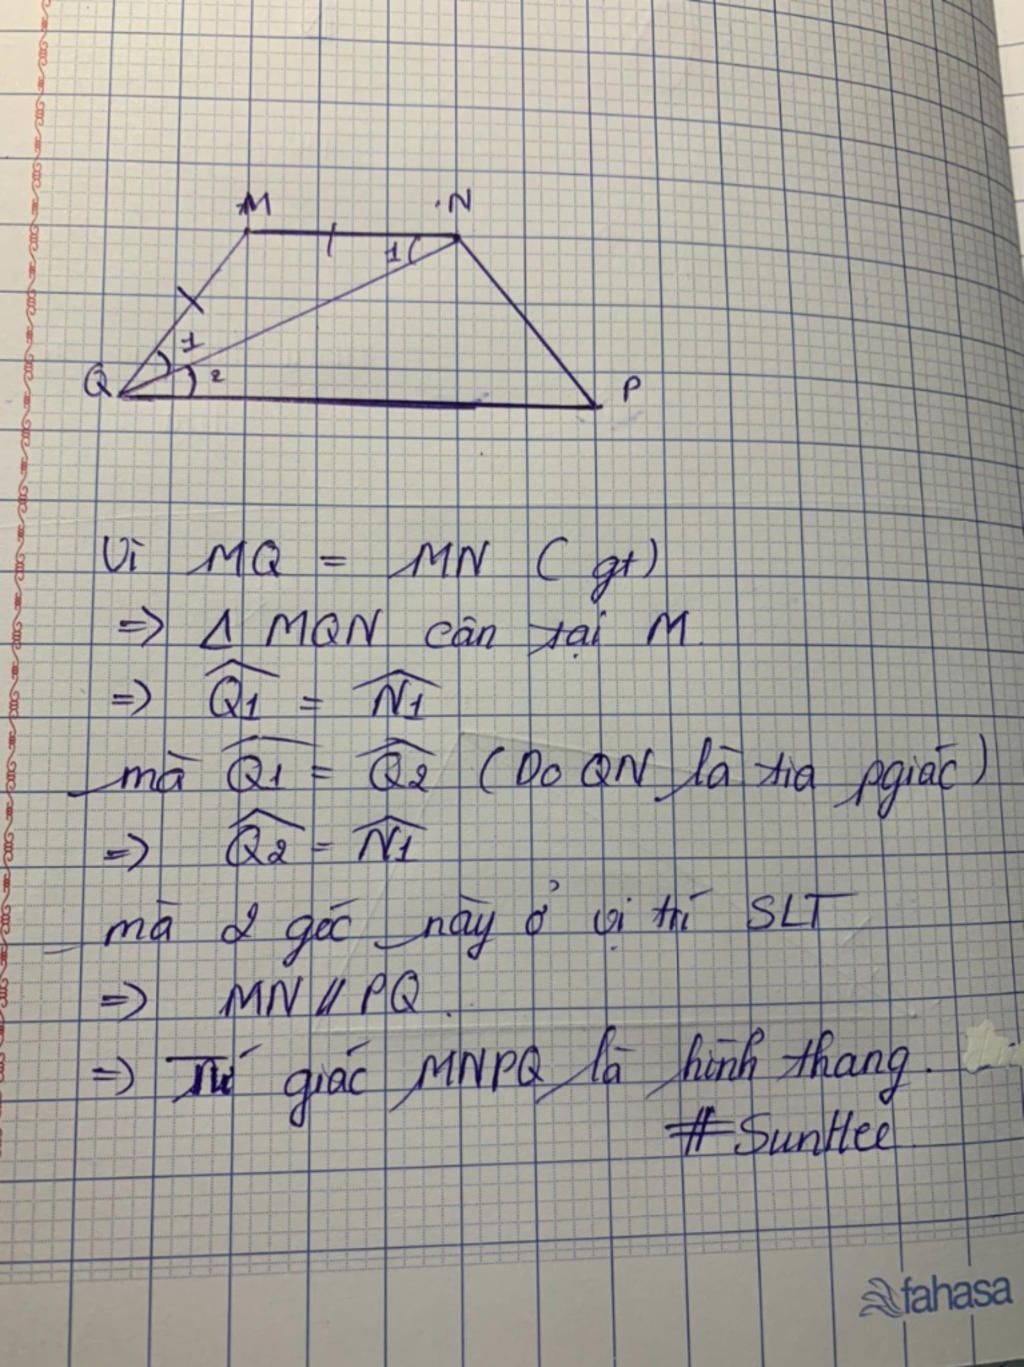 M N
1
1
Q 2 P
Vì MQ = MN (gt)
=> Δ MQN cân tại M.
=> Q1 = N1
mà Q1 = Q2 (Do QN là tia pgiác)
=> Q2 = N1
mà 2 góc này ở vị trí SLT
=> MN // PQ.
=> Tứ giác MNPQ là hình thang.
#SunHee
fahasa